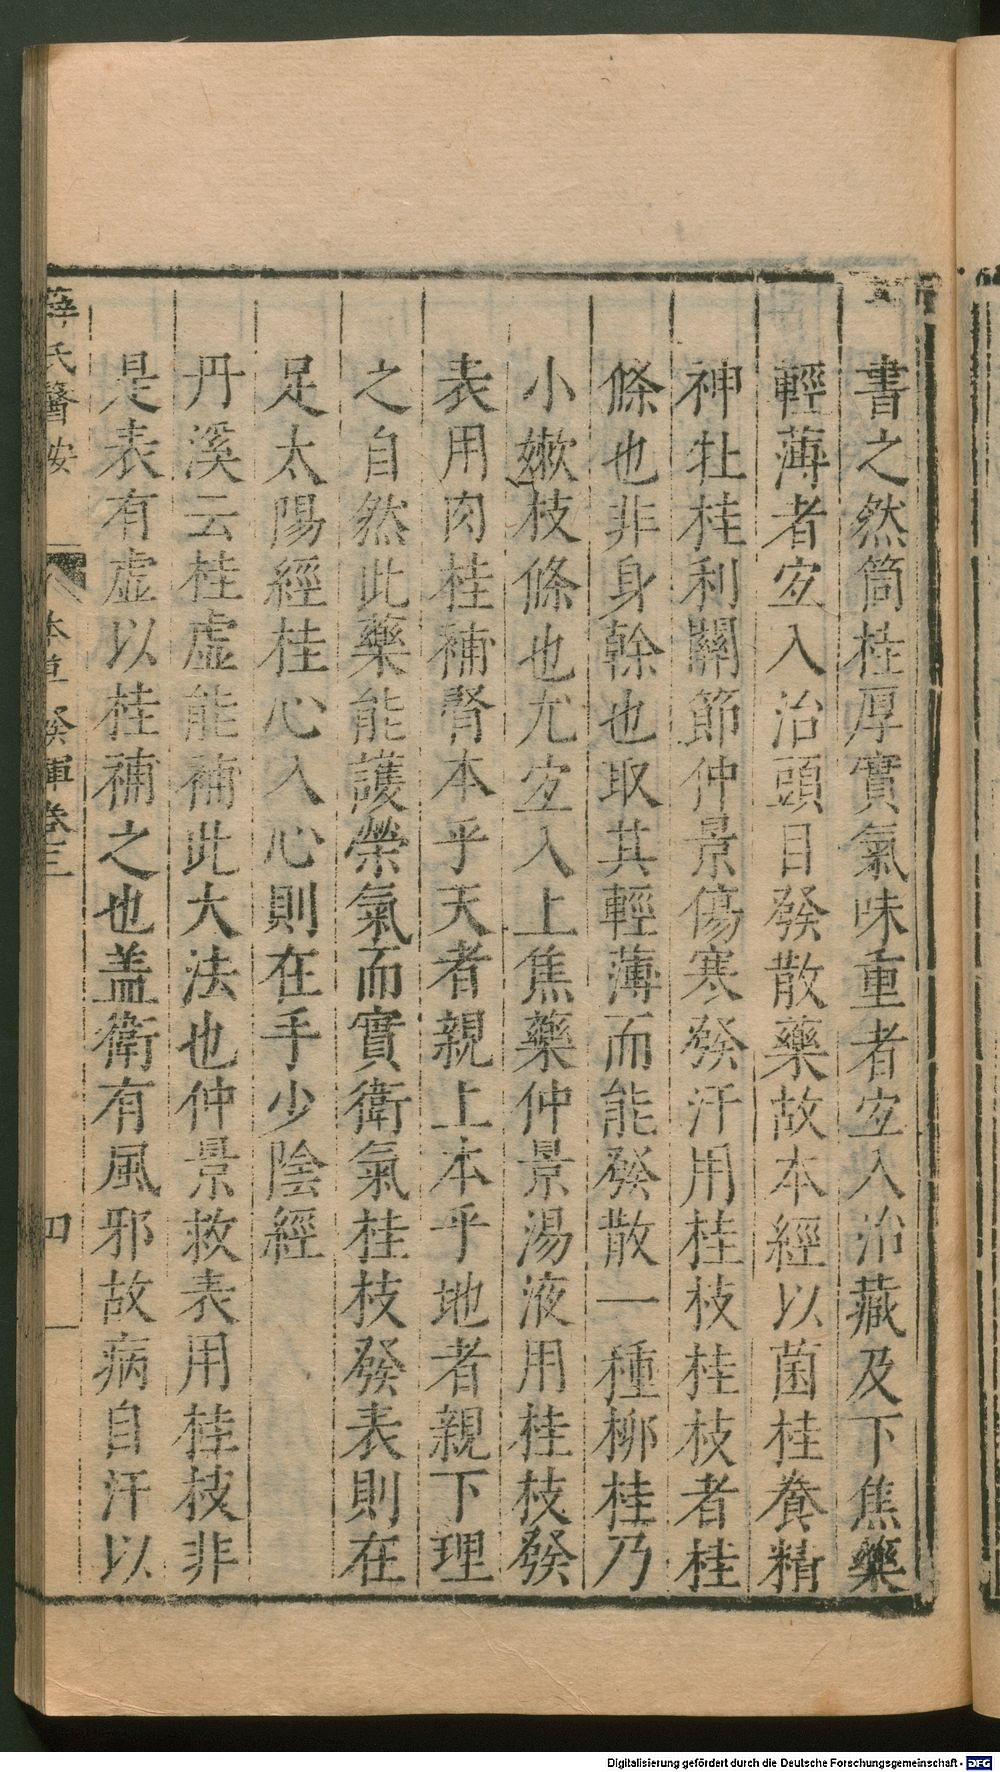 書之然筒桂厚實氣味重者宐入治藏及下焦藥
輕薄者宐入治頭目發散藥故本經以菌桂養精
神牡桂利關節仲景傷寒發汗用桂枝桂枝者桂
條也非身幹也取其輕薄而能發散一種柳桂乃
小嫩枝條也尤宐入上焦藥仲景湯液用桂枝發
表用肉桂補腎本乎天者親上本乎地者親下理
之自然此藥能護榮氣而實衛氣桂枝發表則在
足太陽經桂心入心則在手少陰經
丹溪云桂虛能補此大法也仲景救表用桂枝非
是表有虛以桂補之也盖衛有風邪故病自汗以
薛氏醫按
本草發揮卷三
四
Digitalisierung gefördert durch die Deutsche Forschungsgemeinschaft - DFG